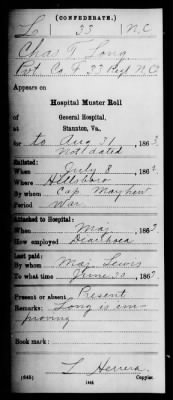 (CONFEDERATE.)
L 33 N.C.
Chas T. Long
Pvt. Co. F 33 Regt N.C.
Appears on
Hospital Muster Roll
of
General Hospital,
Staunton, Va.,
for to Aug 31, 1863.
Not dated
Enlisted:
When July 8, 186
Where Hillsboro
By whom Cap. Mayhew
Period War
Attached to Hospital:
When May, 186
How employed Diarrhoea
Last paid:
By whom Maj. Lewis
To what time June 30, 186
Present or absent Present
Remarks: Long is im-
proving
Book mark:
L Herrera
(645) Copyist.